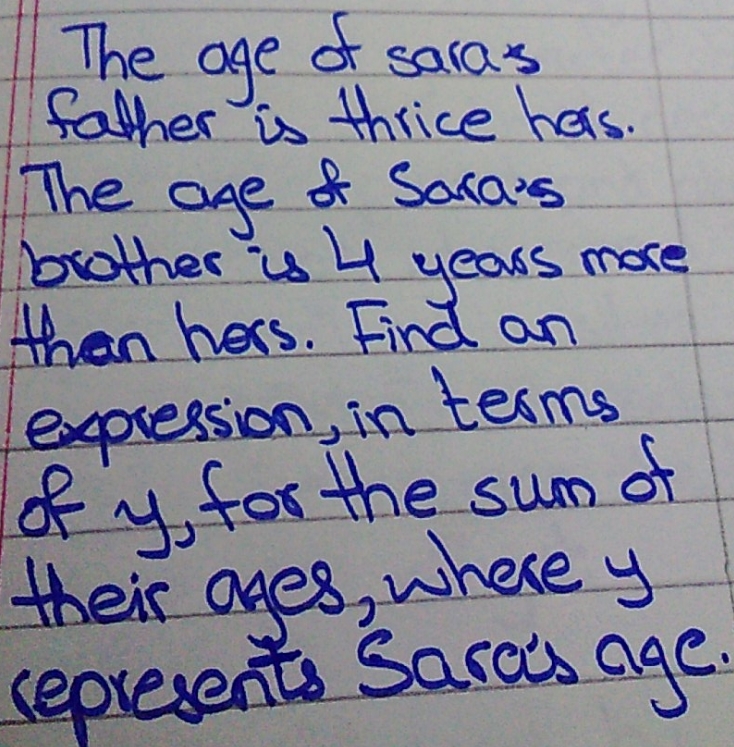 The age of sara's
father is thrice hers.
The age of Sara's
brother is 4 years more
than hers. Find an
expression, in terms
of y, for the sum of
their ages, where y
represents Sara's age.